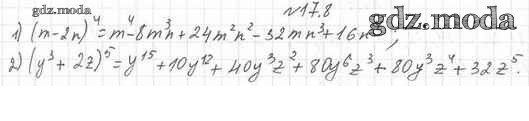 gdz.moda
№17.8
gdz.moda
1) (m-2n)⁴ = m⁴-8m³n+24m²n²-32mn³+16n⁴;
2) (y³+2z)⁵ = y¹⁵+10y¹²+40y³z²+80y⁶z³+80y³z⁴+32z⁵.